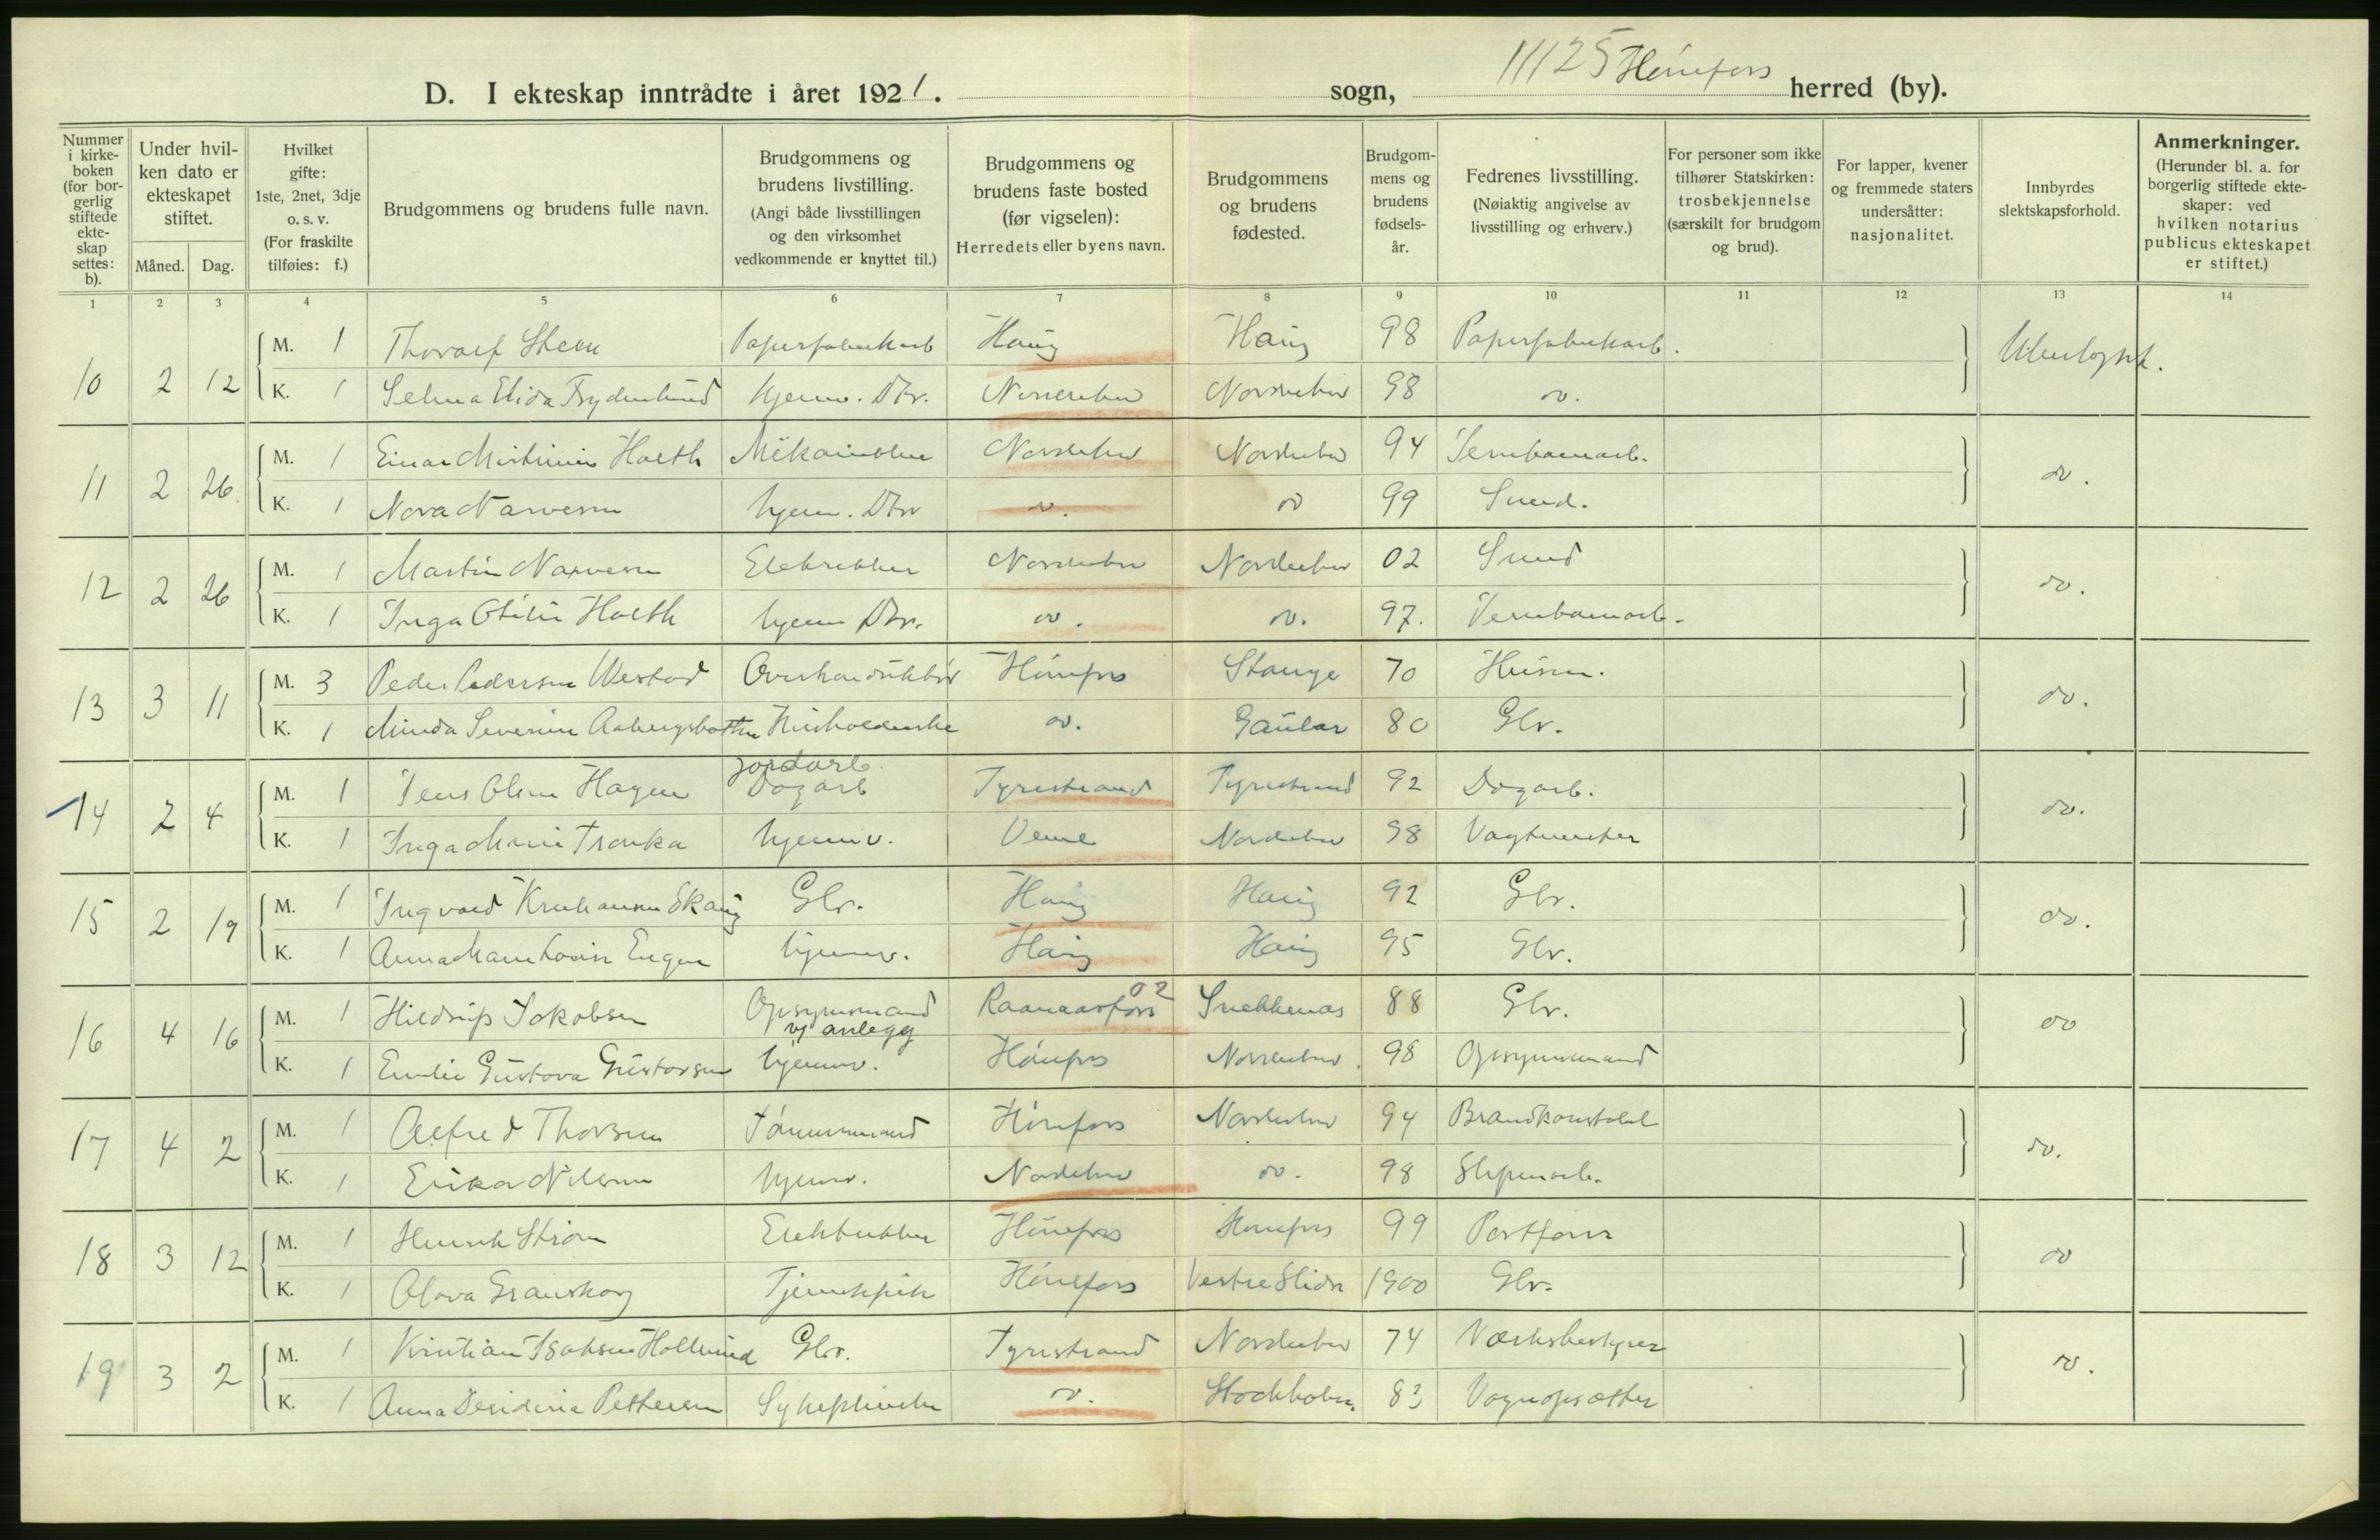 11125 Hønefoss
D. I ekteskap inntrådte i året 1921. sogn, herred (by).
Nummer i kirkeboken (for borgerlig stiftede ekteskap settes: b).
Under hvilken dato er ekteskapet stiftet.
Måned. Dag.
Hvilket gifte: 1ste, 2net, 3dje o. s. v. (For fraskilte tilføies: f.)
Brudgommens og brudens fulle navn.
Brudgommens og brudens livstilling. (Angi både livsstillingen og den virksomhet vedkommende er knyttet til.)
Brudgommens og brudens faste bosted (før vigselen): Herredets eller byens navn.
Brudgommens og brudens fødested.
Brudgommens og brudens fødselsår.
Fedrenes livsstilling. (Nøiaktig angivelse av livsstilling og erhverv.)
For personer som ikke tilhører Statskirken: trosbekjennelse (særskilt for brudgom og brud).
For lapper, kvener og fremmede staters undersåtter: nasjonalitet.
Innbyrdes slektskapsforhold.
Anmerkninger. (Herunder bl. a. for borgerlig stiftede ekteskaper: ved hvilken notarius publicus ekteskapet er stiftet.)
1 2 3 4 5 6 7 8 9 10 11 12 13 14
10 2 12 M. 1 Thoralf Steen Papirfabrikarb Haug Haug 98 Papirfabrikarb. Ubeslægtet.
K. 1 Selma Elida Frydenlund hjemv. Dtr. Norderhov Norderhov 98 do.
11 2 26. M. 1 Einar Martinius Holth Mekaniker Norderhov Norderhov 94 Jernbanearb. do.
K. 1 Nora Narvesen hjem. Dtr do. do 99 Smed.
12 2 26 M. 1 Martin Narvesen Elektriker Norderhov Norderhov 02 Smed do.
K. 1 Inga Otilie Holth hjem Dtr. do. do. 97. Jernbanearb.
13 3 11 M. 3 Peder Pedersen Westad Overkonduktør Hønefos Stange 70 Husm. do.
K. 1 Minda Severine Husholderske do. Gaular 80 Gbr.
jordarb.
14 2 4 M. 1 Jens Olsen Hagen Dagarb Tyristrand Tyristrand 92 Dagarb. do.
K. 1 Inga Marie Tranka hjemv. Veme Norderhov 98 Vagtmester
15 2 19 M. 1 Ingvald Kristiansen Skaug Gbr. Haug Haug 92 Gbr. do.
K. 1 Anna Marie Lovise Engen hjemv. Haug Haug 95 Gbr.
16 4 16 M. 1 Hildrup Jakobsen Opsynsmand v/ anlegg Raanaasfoss 02 Snekkenas 88 Gbr. do
K. 1 Emilie Gustava Gustavsen hjemv. Hønefos Norderhov 98 Opsynsmand
17 4 2 M. 1 Alfred Thorsen Tømmermand Hønefos Norderhov 94 Brandkonstabel do.
K. 1 Erika Nilsen hjemv. Norderhov do. 98 Sliperiarb.
18 3 12 M. 1 Henrik Strøm Elektrikker Hønefos Hønefos 99 Postfører do
K. 1 Olava Granskog Tjenestpike Hønefoss Vestre Slidre 1900 Gbr.
19 3 2 M. 1 Kristian Isaksen Hollerud Gbr. Tyristrand Norderhov 74 Værksbestyrer do.
K. 1 Anna Desideria Pettersen Sykepleierske do. Stockholm. 83 Vognopsætter